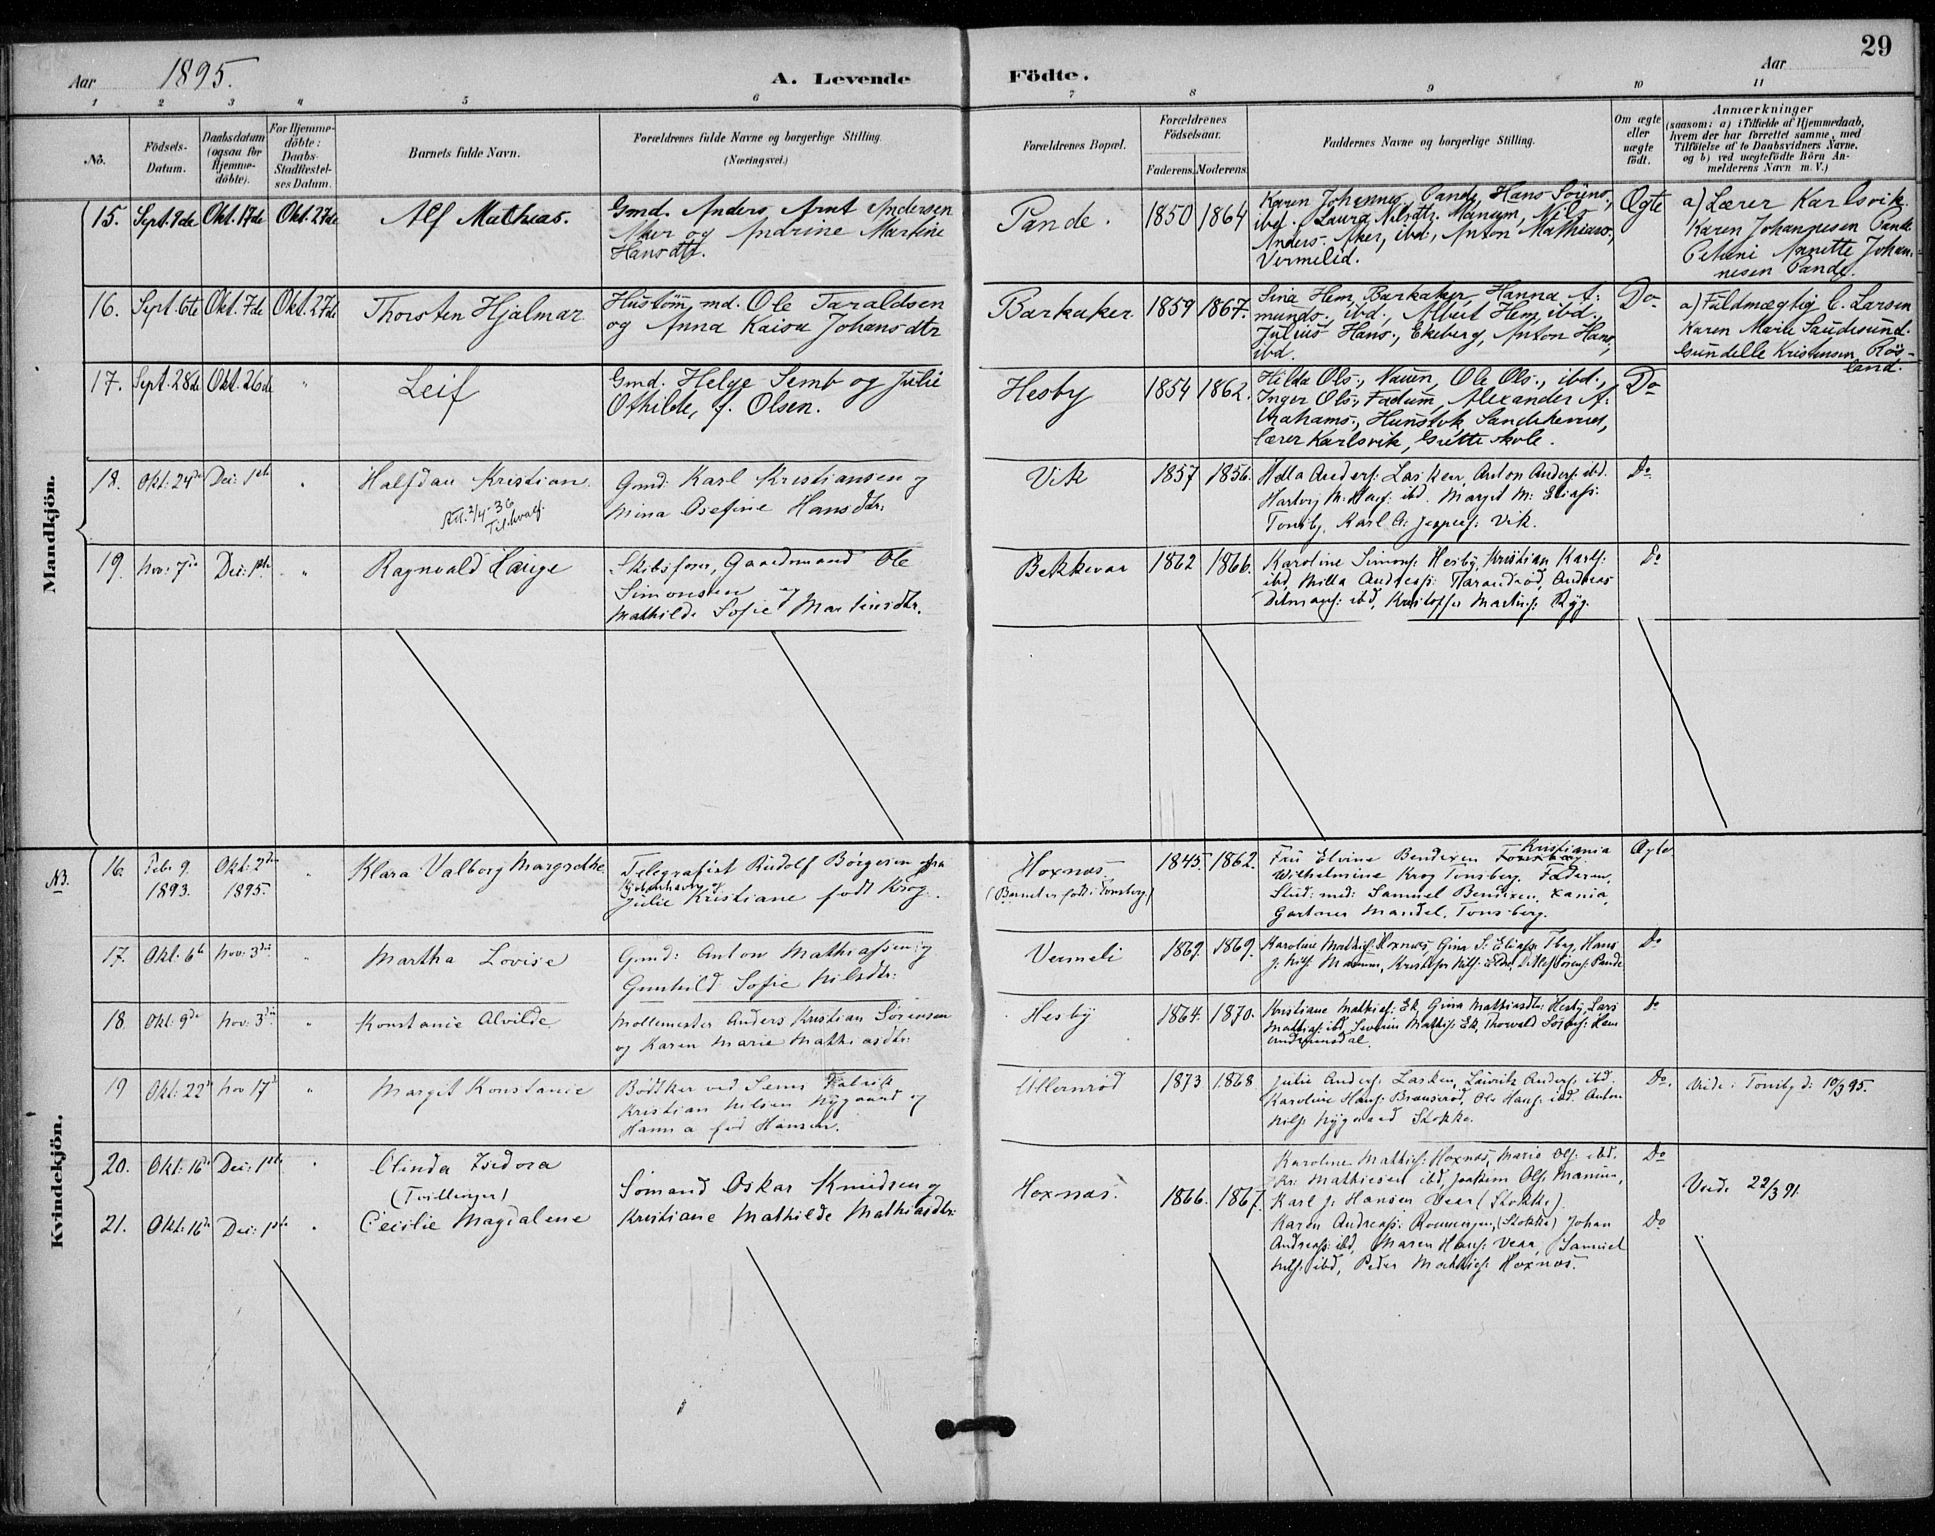 29
Aar 1895.
A. Levende Födte.
Aar
1 2 3 4 5 6 7 8 9 10 11
No.
Födsels-Datum.
Daabsdatum (ogsaa for Hjemme-döbte).
For Hjemme-döbte: Daabs-Stadfæstel-ses Datum.
Barnets fulde Navn.
Forældrenes fulde Navne og borgerlige Stilling. (Næringsvei.)
Forældrenes Bopæl.
Forældrenes Födselsaar.
Faderens. Moderens.
Faddernes Navne og borgerlige Stilling.
Om ægte eller uægte födt.
Anmærkninger
(saasom: a) i Tilfælde af Hjemmedaab, hvem der har forrettet samme, med Tilföielse af to Daabsvidners Navne. og b) ved uægtefödte Börn An-melderens Navn m. V.)
Mandkjön.
15. Sept. 9de Okt. 17de Okt. 27de Alf Mathias.
Gmd. Anders Arnt Andersen
Aker og Andrine Martine
Hansdtr.
Pande. 1850 1864
Karen Johannes. Pande, Hans Sörens.,
ibd. Laura Nilsdtr. Manum, Nils
Anders. Aker, ibd., Anton Mathias.,
Vermelid.
Ægte
a) Lærer Karlsvik.
Karen Johannesen Pande
Petrini Annette Johan-
nesen Pande.
16. Sept. 6te Okt. 7de Okt. 27de Thorsten Hjalmar
Hustömmd. Ole Taraldsen
og Anna Kaisa Johansdtr
Barkaker 1859 1867.
Sina Hem, Barkaker, Hanna A-
munds., ibd., Albert Hem, ibd.,
Julius Hans., Ekeberg, Anton Hans.,
ibd.
Do
a) Fuldmægtig C. Larsen
Karen Marie Saudesund.
Gundelle Kristensen, Rös-
land.
17. Sept. 28de Okt. 26de " Leif
Gmd. Helge Semb og Julie
Othilde, f. Olsen.
Hesby 1854 1862.
Hilda Ols., Nauen, Ole Ols., ibd.,
Inger Ols., Fadum, Alexander A-
brahams., Hunstok, Sandeherred,
Lærer Karlsvik, Gretteskole.
Do
18. Okt. 24de Dec: 1ste " Halfdan Kristian.
Att. 2/4-36
Gmd. Karl Kristiansen og
Mina Josefine Hansdtr:
Vik 1857 1856.
Anders: Lasken, Anton Anders: ibd.
Hartvig M: Hans: ibd. Margit M: Elias:
Tonsbg. Karl A: Jeppes: Vik.
Do
19. Nov: 7de Dec: 1ste " Ragnvald Hauge
Skibsförer, Gaardmand Ole
Simonsen og
Mathilde Sofie Martinsdtr.
Bekkevar 1862 1866.
Karoline Simons: Hesby, Kristian Karls:
ibd, Milla Andreas: Tharandröd, Andreas
Ditmans: ibd, Kristoffer Martins: Ryg.
Do
Kvindekjön.
NB. 16. Febr 9. 1893. Okt. 2den 1895. " Klara Valborg Margrethe.
Telegrafist Rudolf Börgesen fra
Kjöbenhavn og
Julie Kristiane födt Krog.
Hoxnas
(Barnet er födt i Tonsberg)
1845. 1862.
Fru Elvine Bendixen Tonsberg. Kristiania
Wilhelmine Krog Tonsberg. Faderen,
Stud: med: Samuel Bendixen, Xania,
Gartner Mandel, Tonsberg.
Ægte
17. Okt. 6te Nov: 3die " Martha Lovise
Gmd: Anton Mathiassen og
Gunhild Sofie Nilsdtr:
Vermeli 1869. 1869.
Karoline Mathis: Hoxnas, Gina S: Elias: Tbg, Hans
J. Nils: Manum, Kristoffer Nils: Pande
Do
18. Okt. 9de Nov: 3die " Konstanse Alvilde
Mollemester Anders Kristian Sörensen
og Karen Marie Mathiasdtr:
Hesby 1864. 1870.
Kristiane Mathias: Ek, Gina Mathiasdtr: Hesby, Lars
Mathias: ibd, Severin Mathis: Ek, Thorvald Hem
Do
19 Okt: 22de Nov 17de " Margit Konstanse
Bödker ved Sems Fabrik
Kristian Nilsen Nygaard og
Hanna föd Hansen.
Ullernröd 1873 1868.
Julie Anders: Lasken, Lauritz Anders: ibd.
Karoline Hans: Brunseröd, Ole Hans: ibd. Anton
Nils: Nygaard Stokke.
Do. Viede i Tonsbg d: 10/3 95.
20. Okt: 16de Dec: 1ste " Olinda Isidora
(Tvillinger)
21. Okt: 16de Dec: 1ste " Cecilie Magdalene
Sömand Oskar Knudsen og
Kristiane Mathilde Mathiasdtr:
Hoxnas. 1866. 1867.
Karoline Mathis: Hoxnas, Marie Ols: ibd.
Kr: Mathiesen ibd, Joakim Ols: Manum,
Karl J. Hansen Vear (Stokke).
Do
Viede 22/3 91.
Karen Andreas: Rommengen, (Stokke) Johan
Andreas: ibd, Maren Hans: Vear, Samuel
Nils: ibd, Peder Mathias: Hoxnas.
Do